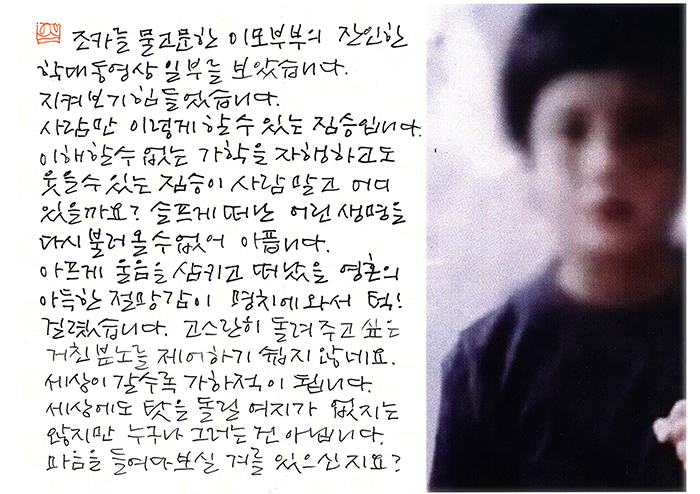 조카를 물고문한 이모부부의 잔인한
학대동영상 일부를 보았습니다.
지켜보기 힘들었습니다.
사람만 이렇게 할 수 있는 짐승입니다.
이해할 수 없는 가학을 자행하고도
웃을 수 있는 짐승이 사람 말고 어디
있을까요? 슬프게 떠난 어린 생명을
다시 불러 올 수 없어 아픕니다.
아프게 울음을 삼키고 떠났을 영혼의
아득한 절망감이 명치에 와서 턱!
걸렸습니다. 고스란히 돌려 주고 싶은
거친 분노를 제어하기 쉽지 않네요.
세상이 갈수록 가학적이 됩니다.
세상에도 탓을 돌릴 여지가 없지는
않지만 누구나 그러는 건 아닙니다.
마음을 들여다 보실 겨를 있으신지요?